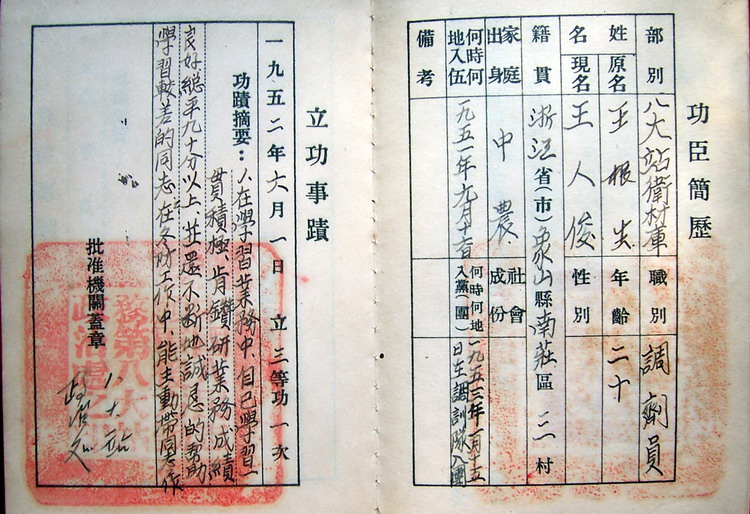 功臣簡歷
部別 八大站衛材庫 職別 調劑員
姓名 原名 王根生 年齡 二十
現名 王人俊 性別
籍貫 浙江省(市)象山縣南莊區三村
家庭出身 中農 社會成份
何時何地入伍 一九五一年九月十六日 何時何地入黨(團) 一九五三年一月十五日在調劑隊入團
備考
立功事蹟
一九五二年六月一日 立三等功一次
功蹟摘要：
1、在學習業務中、自己學習一
貫積極、肯鑽研業務成績
良好總平九十分以上、並還不斷地誠懇的幫助
學習較差的同志、在工作中能主動帶同志作
批准機關蓋章
八大站
政治處